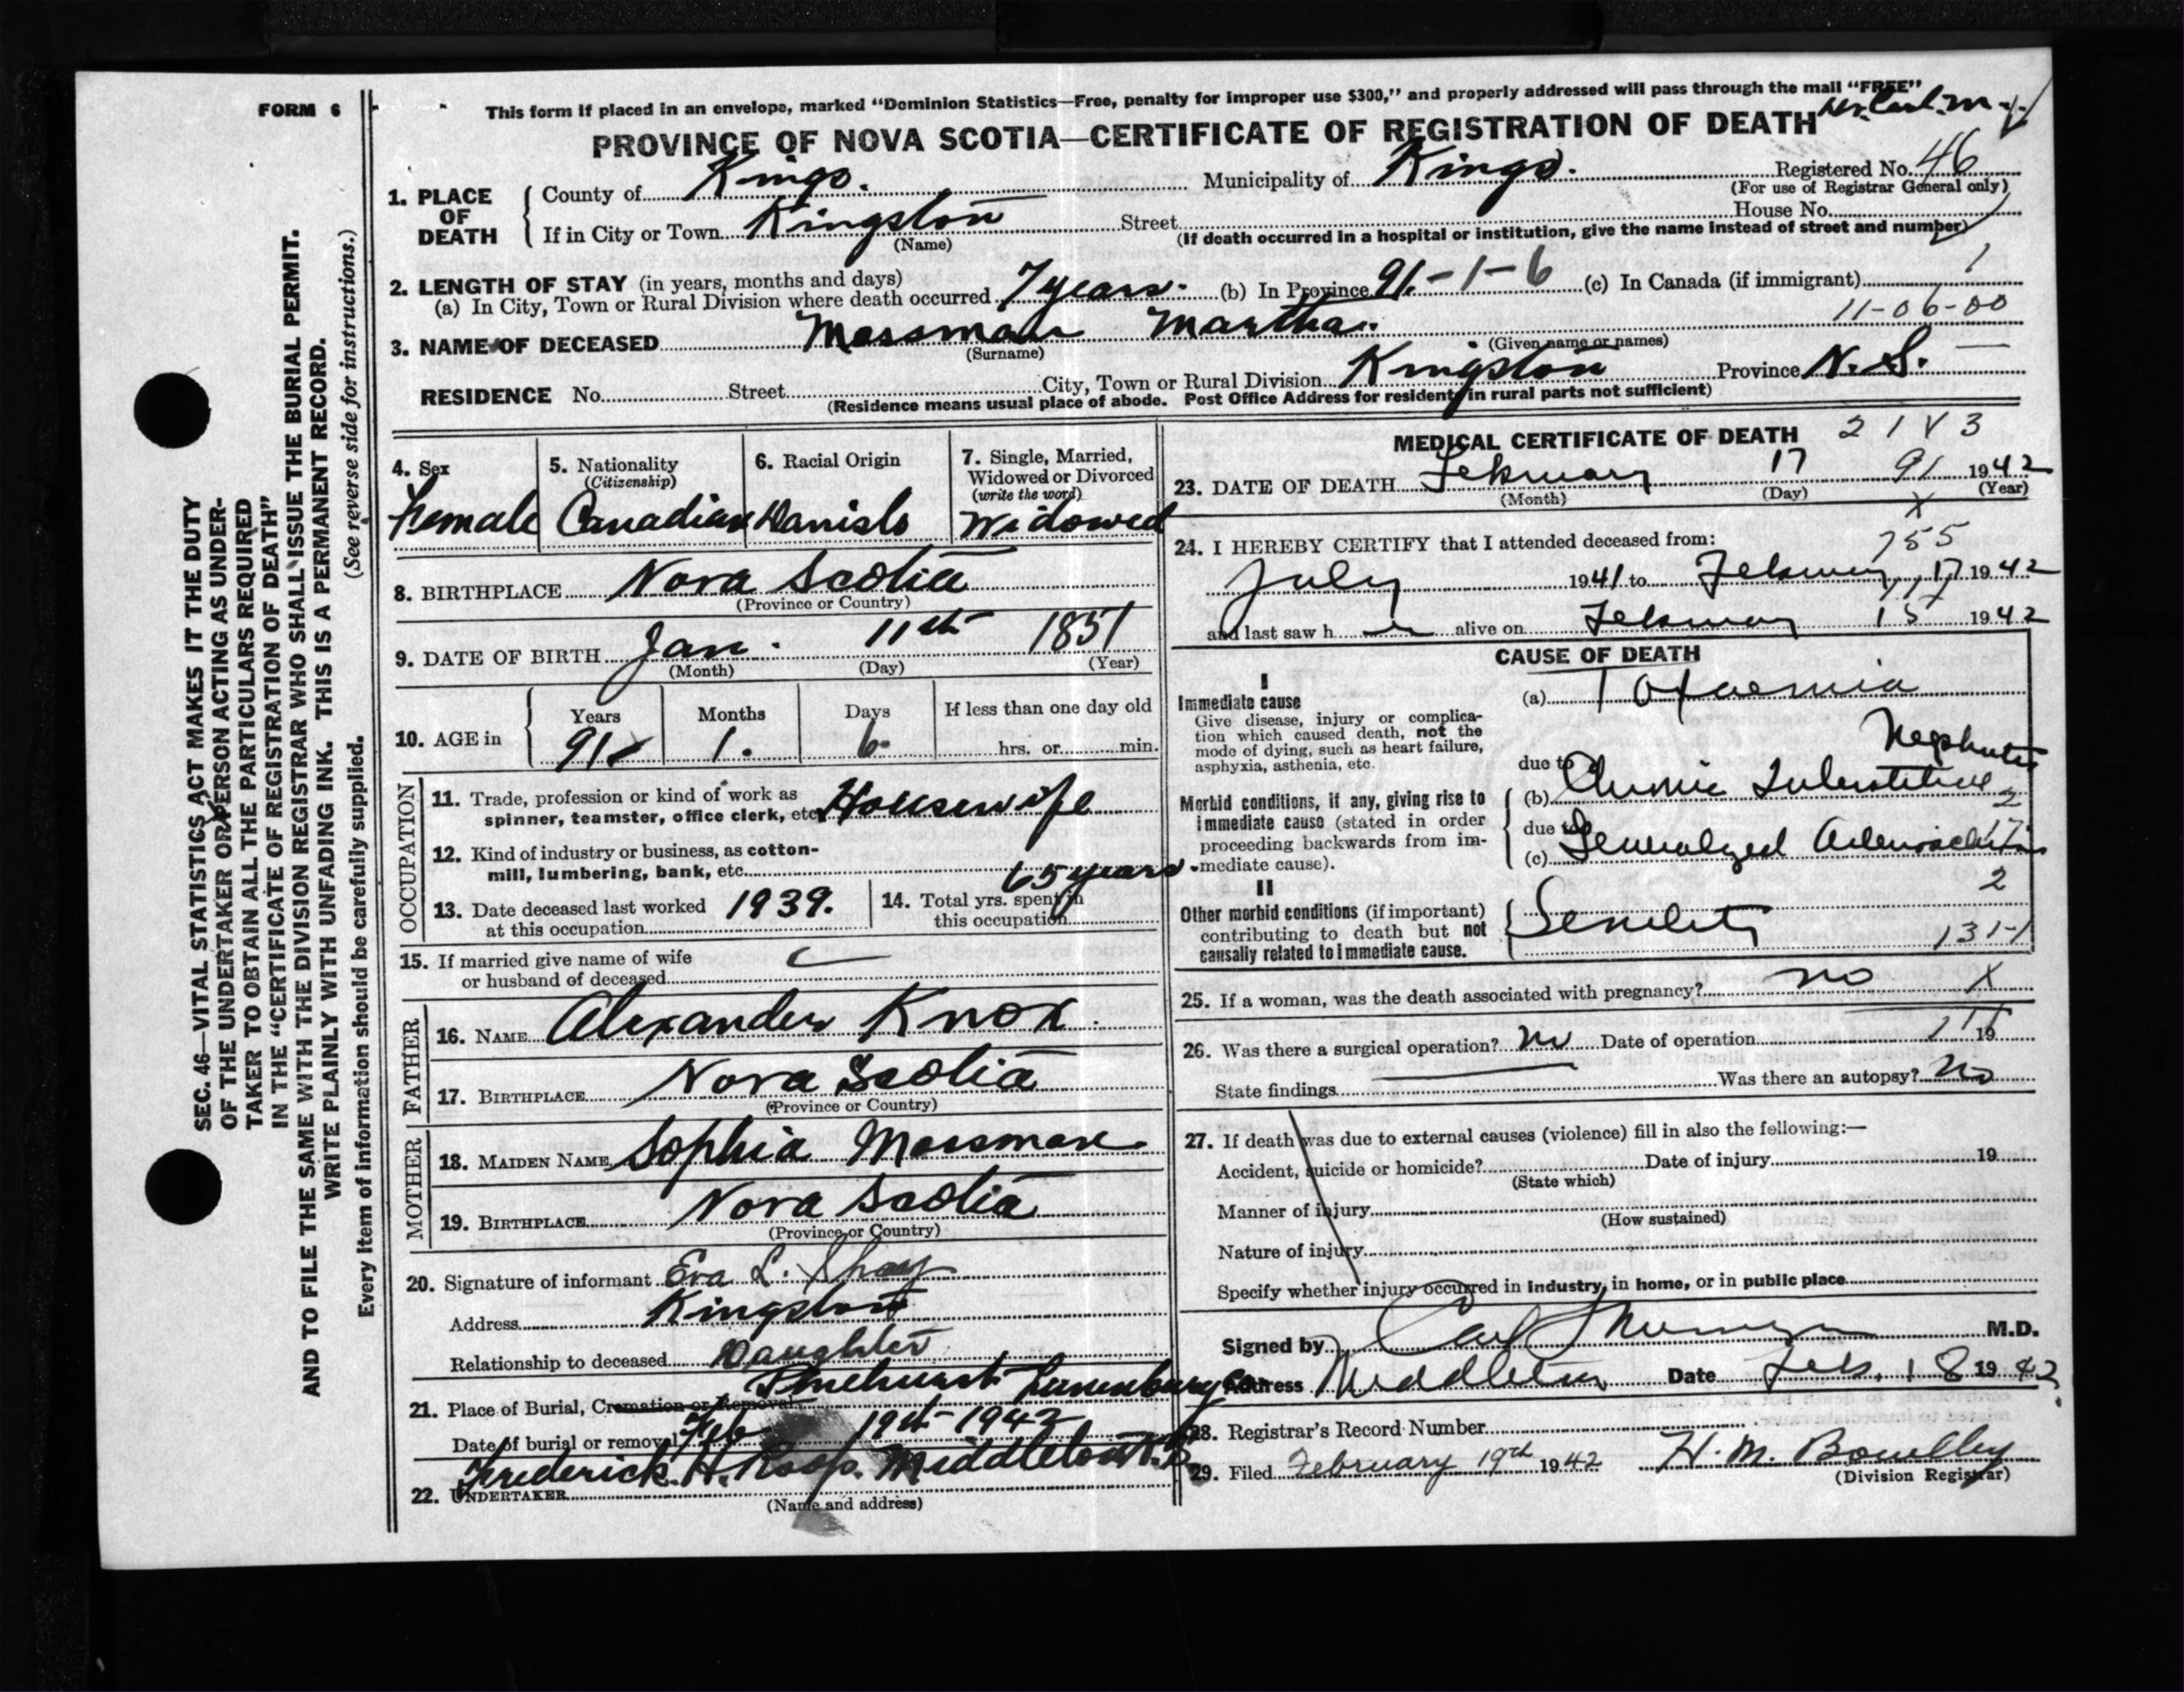 FORM 6
This form if placed in an envelope, marked "Dominion Statistics—Free, penalty for improper use $300," and properly addressed will pass through the mail "FREE"
PROVINCE OF NOVA SCOTIA—CERTIFICATE OF REGISTRATION OF DEATH
Registered No. 46
(For use of Registrar General only)
1. PLACE OF DEATH
County of Kings. Municipality of Kings.
If in City or Town Kingston Street House No.
(Name) (If death occurred in a hospital or institution, give the name instead of street and number)
2. LENGTH OF STAY (in years, months and days)
(a) In City, Town or Rural Division where death occurred 7 years. (b) In Province 91.-1-6 (c) In Canada (if immigrant)
11-06-00
3. NAME OF DECEASED Mossman Martha.
(Surname) (Given name or names)
RESIDENCE No. Street City, Town or Rural Division Kingston Province N.S.
(Residence means usual place of abode. Post Office Address for residents in rural parts not sufficient)
4. Sex Female
5. Nationality (Citizenship) Canadian
6. Racial Origin Danish
7. Single, Married, Widowed or Divorced (write the word) Widowed
8. BIRTHPLACE Nova Scotia
(Province or Country)
9. DATE OF BIRTH Jan. 11th 1851
(Month) (Day) (Year)
10. AGE in Years 91 Months 1. Days 6 If less than one day old hrs. or min.
OCCUPATION
11. Trade, profession or kind of work as spinner, teamster, office clerk, etc. Housewife
12. Kind of industry or business, as cotton-mill, lumbering, bank, etc.
13. Date deceased last worked at this occupation 1939.
14. Total yrs. spent in this occupation 65 years
15. If married give name of wife or husband of deceased
FATHER
16. NAME Alexander Knox.
17. BIRTHPLACE Nova Scotia
(Province or Country)
MOTHER
18. MAIDEN NAME Sophia Mossman
19. BIRTHPLACE Nova Scotia
(Province or Country)
20. Signature of informant Eva L.
Address Kingston
Relationship to deceased Daughter
21. Place of Burial, Cremation or Removal Pinehurst Lunenburg Co
Date of burial or removal Feb 19th 1942
22. UNDERTAKER Frederick. H. Roop. Middleton
(Name and address)
MEDICAL CERTIFICATE OF DEATH
23. DATE OF DEATH February 17 91 1942
(Month) (Day) (Year)
24. I HEREBY CERTIFY that I attended deceased from:
July 1941 to February 17 1942
and last saw h er alive on February 15 1942
CAUSE OF DEATH
I
Immediate cause
Give disease, injury or complication which caused death, not the mode of dying, such as heart failure, asphyxia, asthenia, etc.
(a) Toxaemia
due to
Morbid conditions, if any, giving rise to immediate cause (stated in order proceeding backwards from immediate cause).
(b) Chronic Interstitial Nephritis
due to
(c) Generalized Arteriosclerosis
II
Other morbid conditions (if important) contributing to death but not causally related to immediate cause.
Senility
131-1
25. If a woman, was the death associated with pregnancy? no X
26. Was there a surgical operation? no Date of operation 19
State findings Was there an autopsy? no
27. If death was due to external causes (violence) fill in also the following:—
Accident, suicide or homicide? Date of injury 19
(State which)
Manner of injury
(How sustained)
Nature of injury
Specify whether injury occurred in industry, in home, or in public place
Signed by M.D.
Address Middleton Date Feb. 18 1942
28. Registrar's Record Number
29. Filed February 19th 1942 H. M.
(Division Registrar)
SEC. 46—VITAL STATISTICS ACT MAKES IT THE DUTY
OF THE UNDERTAKER OR PERSON ACTING AS UNDER-
TAKER TO OBTAIN ALL THE PARTICULARS REQUIRED
IN THE "CERTIFICATE OF REGISTRATION OF DEATH"
AND TO FILE THE SAME WITH THE DIVISION REGISTRAR WHO SHALL ISSUE THE BURIAL PERMIT.
WRITE PLAINLY WITH UNFADING INK. THIS IS A PERMANENT RECORD.
(See reverse side for instructions.)
Every item of information should be carefully supplied.